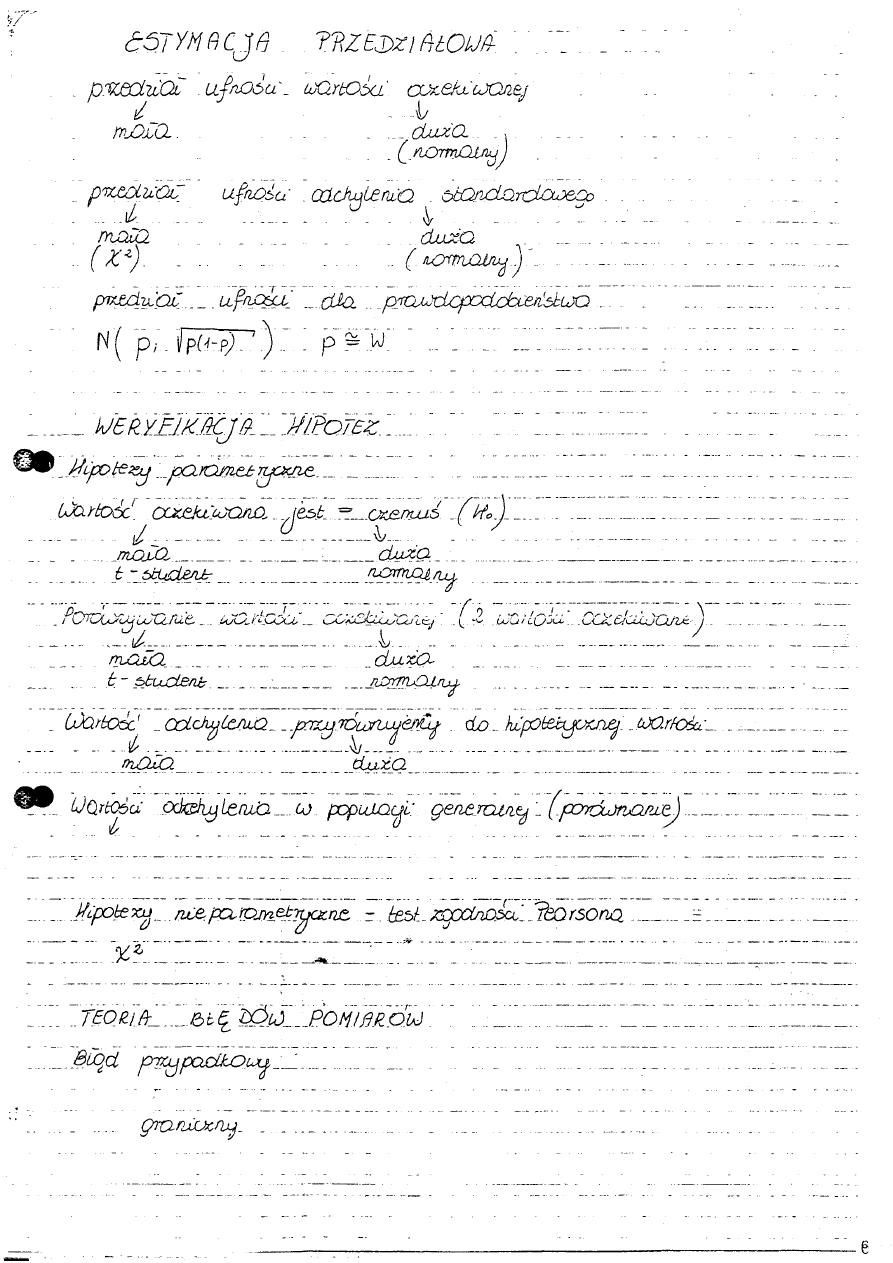 ESTYMACJA PRZEDZIAŁOWA
przedział ufności wartości oczekiwanej
mała duża
(normalny)
przedział ufności odchylenia standardowego
mała duża
(χ²) (normalny)
przedział ufności dla prawdopodobieństwa
N(p, √p(1-p)) p ≅ W
WERYFIKACJA HIPOTEZ
Hipotezy parametryczne
Wartość oczekiwana jest = czemuś (H₀)
mała duża
t-student normalny
Porównywanie wartości oczekiwanej (2 wartości oczekiwane)
mała duża
t-student normalny
Wartość odchylenia przyrównujemy do hipotetycznej wartości
mała duża
Wartości odchylenia w populacji generalnej (porównanie)
Hipotezy nieparametryczne - test zgodności Pearsona
χ²
TEORIA BŁĘDÓW POMIARÓW
Błąd przypadkowy
graniczny
6